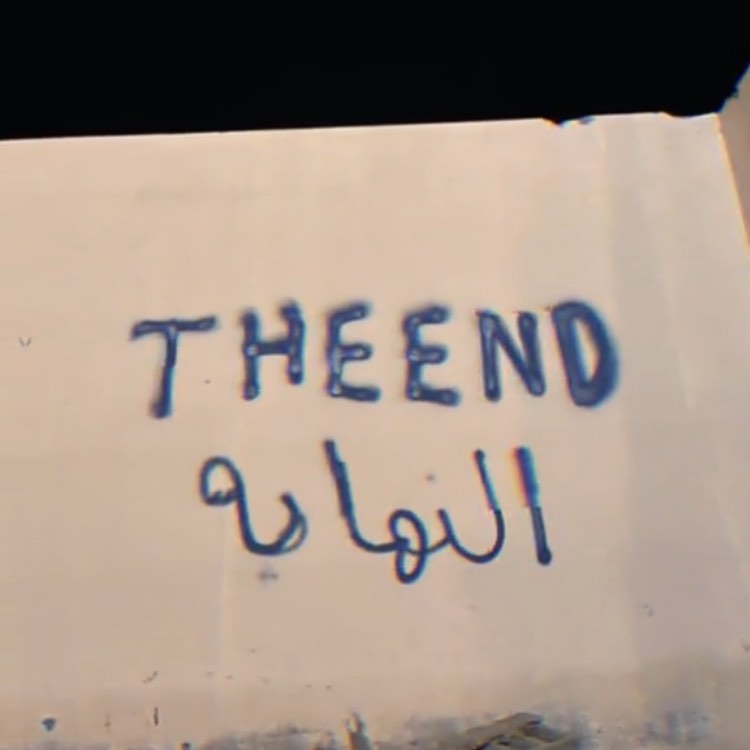 THE END
النهاية